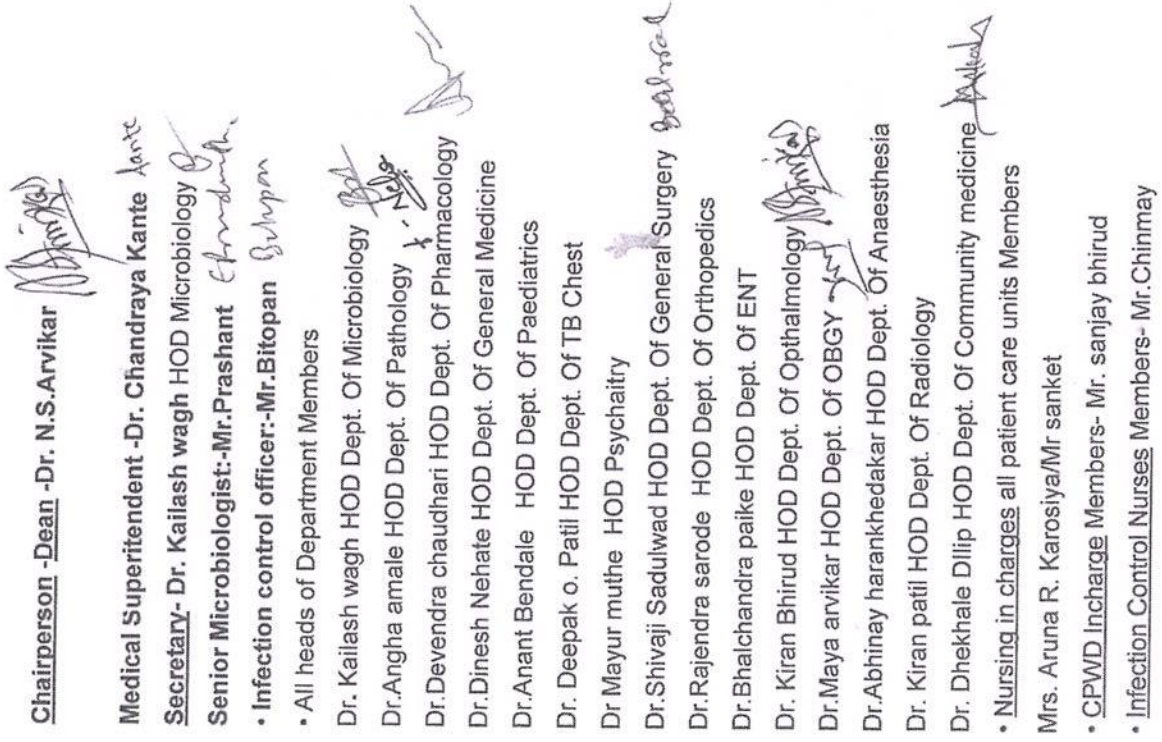 Chairperson -Dean -Dr. N.S.Arvikar
Medical Supritendent -Dr. Chandraya Kante Kante
Secretary- Dr. Kailash wagh HOD Microbiology
Senior Microbiologist:-Mr.Prashant
• Infection control officer:-Mr.Bitopan Bitopan
• All heads of Department Members
Dr. Kailash wagh HOD Dept. Of Microbiology
Dr.Angha amale HOD Dept. Of Pathology
Dr.Devendra chaudhari HOD Dept. Of Pharmacology
Dr.Dinesh Nehate HOD Dept. Of General Medicine
Dr.Anant Bendale HOD Dept. Of Paediatrics
Dr. Deepak o. Patil HOD Dept. Of TB Chest
Dr Mayur muthe HOD Psychaitry
Dr.Shivaji Sadulwad HOD Dept. Of General Surgery
Dr.Rajendra sarode HOD Dept. Of Orthopedics
Dr.Bhalchandra paike HOD Dept. Of ENT
Dr. Kiran Bhirud HOD Dept. Of Opthalmology
Dr.Maya arvikar HOD Dept. Of OBGY
Dr.Abhinay harankhedakar HOD Dept. Of Anaesthesia
Dr. Kiran patil HOD Dept. Of Radiology
Dr. Dhekhale DIlip HOD Dept. Of Community medicine
• Nursing in charges all patient care units Members
Mrs. Aruna R. Karosiya/Mr sanket
• CPWD Incharge Members- Mr. sanjay bhirud
• Infection Control Nurses Members- Mr.Chinmay